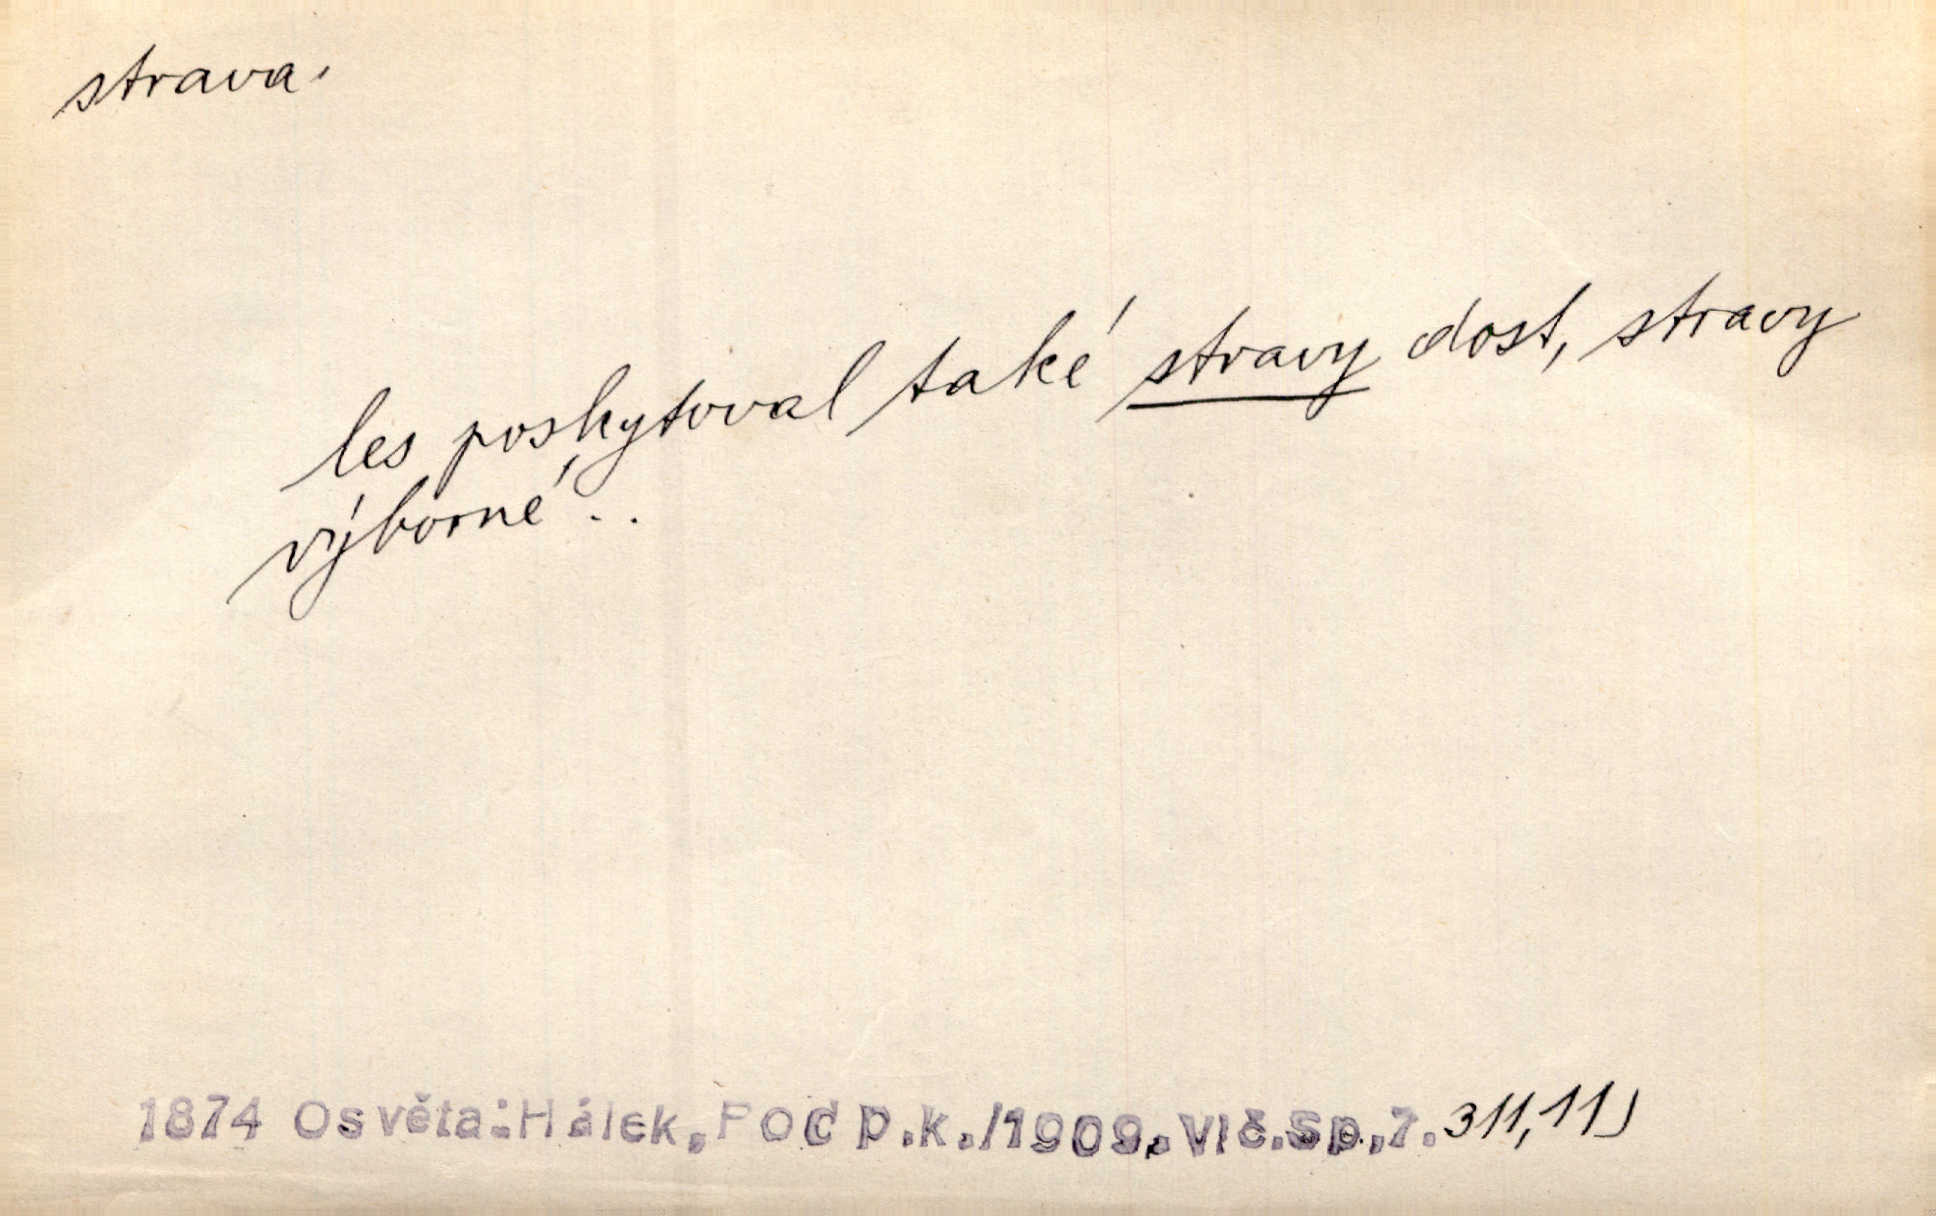 strava.
les poskytoval také stravy dost, stravy
výborné..
1874 Osvěta:Hálek,Pod p.k./1909,Vlč.Sp.7.311,11)